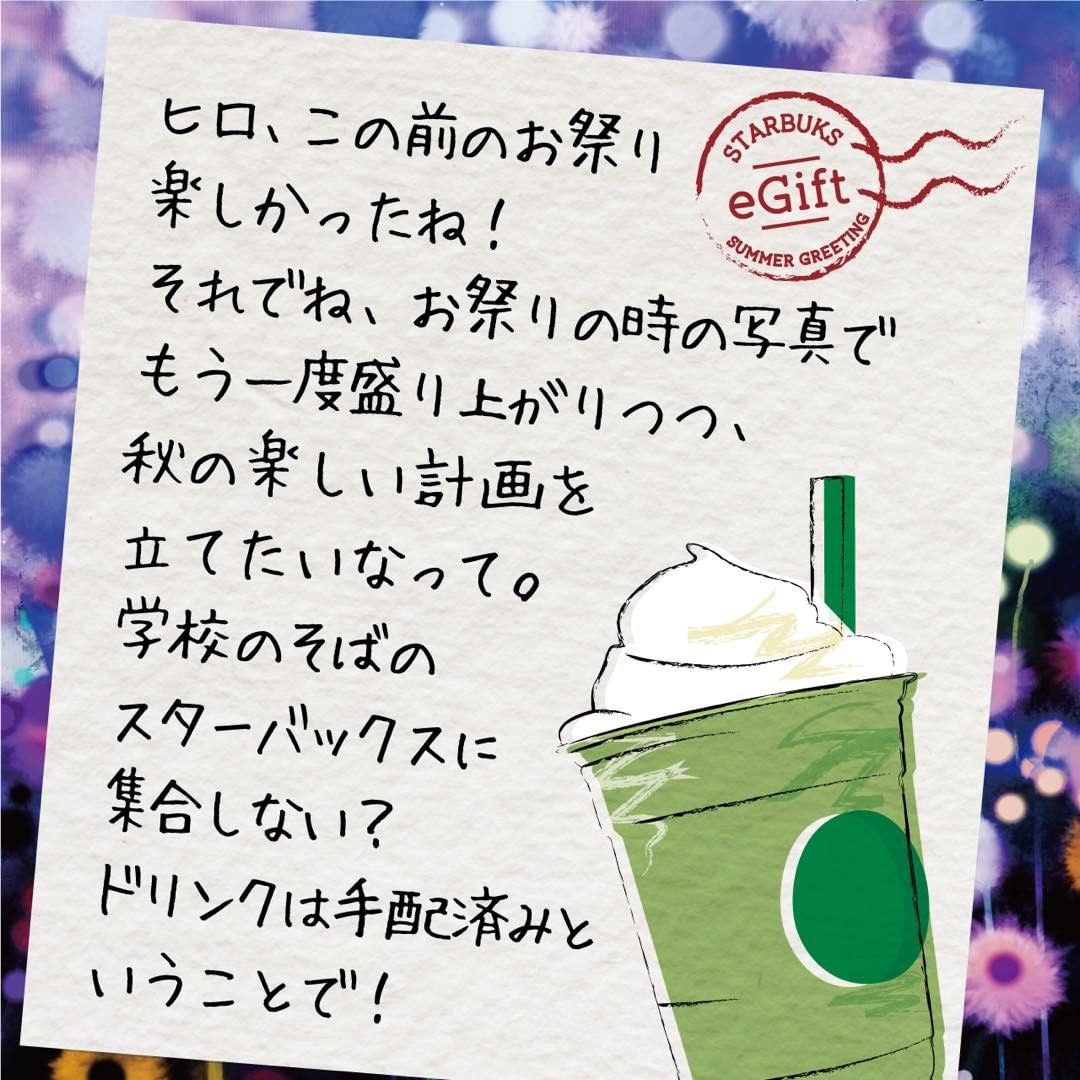 ヒロ、この前のお祭り
楽しかったね！
それでね、お祭りの時の写真で
もう一度盛り上がりつつ、
秋の楽しい計画を
立てたいなって。
学校のそばの
スターバックスに
集合しない？
ドリンクは手配済みと
いうことで！
STARBUKS
eGift
SUMMER GREETING